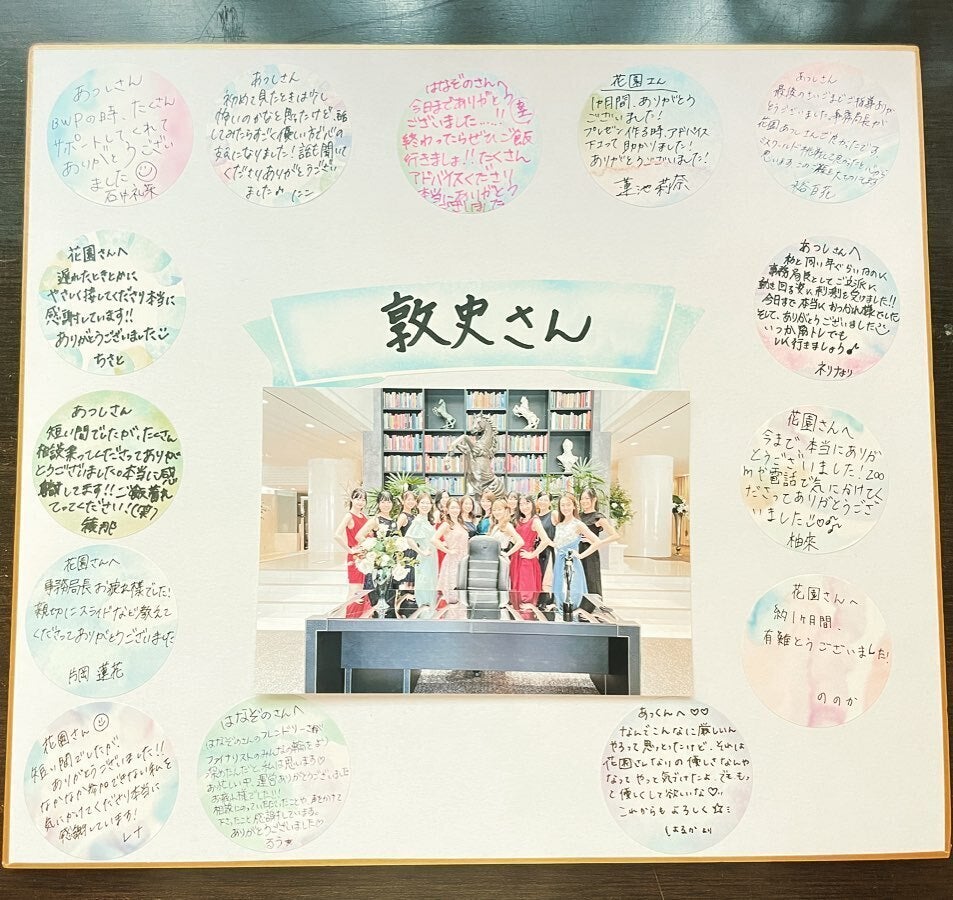 あつしさん
BWPの時、たくさん
サポートしてくれて
ありがとうござい
ました
石中礼来
あつしさん
初めて見たときは少し
怖いのかなと思ったけど、話
してみたらすごく優しい方で心の
支えになりました！話を聞いて
くださりありがとうござい
ました♪ にこ
はなぞのさんへ
今日までありがとう
ございました……!!
終わったらぜひご飯
行きましょ!!たくさん
アドバイスくださり
本当にありがとう
ございました
花園さん
1ヶ月間、ありがとう
ございました！
プレゼン作る時、アドバイス
下さって助かりました！
ありがとうございました！
蓮池莉奈
あつしさん
最後のさいごまでご指導あり
がとうございました。事務局長が
花園あつしさん
花園さんへ
遅れたときとかに
やさしく接してくださり本当に
感謝しています!!
ありがとうございました
ちさと
敦史さん
あつしさんへ
私と同い年ぐらいなのに
事務局長としてご立派に
動き回る姿に刺激を受けました!!
今日まで本当におつかれ様でした
そして、ありがとうございました
いつか筋トレでも
しに行きましょう♪
あつしさん
短い間でしたが、たくさん
相談乗ってくださってありが
とうございました。本当に感
謝してます!!ご飯着れ
てってください！(笑)
綾那
花園さんへ
今まで本当にありが
とうございました！zoo
mや電話で気にかけてく
ださってありがとうござ
いました♡
柚来
花園さんへ
事務局長お疲れ様でした！
親切にスライドなど教えて
くださってありがとうございました
片岡 蓮花
花園さんへ
約1ヶ月間、
有難とうございました！
ののか
花園さん
短い間でしたが
ありがとうございました!!
なかなか参加できない私を
気にかけてくださり本当に
感謝しています！
レナ
はなぞのさんへ
はなぞのさんのフレンドリーさが
ファイナリストのみんなの輪をより
深めたんだと私は思います♡
お忙しい中、運営ありがとうございました
お疲れ様でした!!!
相談にのっていただいたことや、声をかけて
下さったこと感謝しています。
ありがとうございました♡
るう★
あっくんへ♡♡
なんでこんなに厳しいん
やろって思っとったけど、それは
花園さんなりの優しさなんや
なってやっと気づけたよ、でももっ
と優しくして欲しいな♡
これからもよろしく☆
はるかより